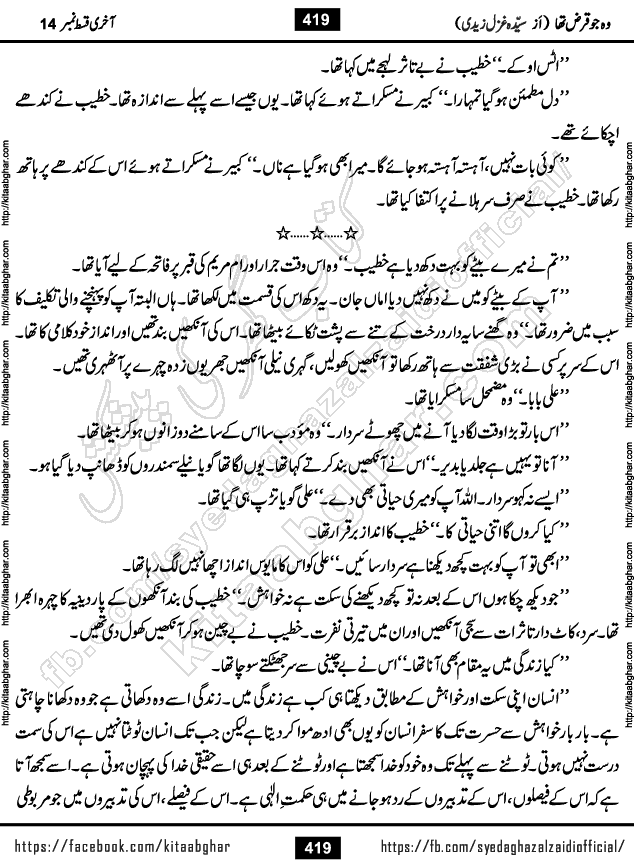 وہ جو قرض تھا (از سیّدہ غزل زیدی) 419 آخری قسط نمبر 14
’’اٹس اوکے۔‘‘ خطیب نے بے تاثر لہجے میں کہا تھا۔
’’دل مطمئن ہو گیا تمہارا۔‘‘ کبیر نے مسکراتے ہوئے کہا تھا۔ یوں جیسے اسے پہلے سے اندازہ تھا۔ خطیب نے کندھے
اچکائے تھے۔
’’کوئی بات نہیں، آہستہ آہستہ ہو جائے گا۔ میرا بھی ہو گیا ہے ناں۔‘‘ کبیر نے مسکراتے ہوئے اس کے کندھے پر ہاتھ
رکھا تھا۔ خطیب نے صرف سر ہلانے پر اکتفا کیا تھا۔
☆......☆......☆
’’تم نے میرے بیٹے کو بہت دکھ دیا ہے خطیب۔‘‘ وہ اس وقت جرار اور ام مریم کی قبر پر فاتحہ کے لیے آیا تھا۔
’’آپ کے بیٹے کو میں نے دکھ نہیں دیا اماں جان۔ یہ دکھ اس کی قسمت میں لکھا تھا۔ ہاں البتہ آپ کو پہنچنے والی تکلیف کا
سبب میں ضرور تھا۔‘‘ وہ گھنے سایہ دار درخت کے تنے سے پشت ٹکائے بیٹھا تھا۔ اس کی آنکھیں بند تھیں اور انداز خود کلامی کا تھا۔
اس کے سر پر کسی نے بڑی شفقت سے ہاتھ رکھا تو آنکھیں کھولیں، گہری نیلی آنکھیں جھریوں زدہ چہرے پر آٹھہری تھیں۔
’’علی بابا۔‘‘ وہ مضمحل سا مسکرایا تھا۔
’’اس بار تو بڑا وقت لگا دیا آنے میں چھوٹے سردار۔‘‘ وہ مؤدب سا اس کے سامنے دو زانوں ہو کر بیٹھا تھا۔
’’آنا تو یہیں ہے جلد یا بدیر۔‘‘ اس نے آنکھیں بند کرتے کہا تھا۔ یوں لگا تھا گویا نیلے سمندروں کو ڈھانپ دیا گیا ہو۔
’’ایسے نہ کہو سردار۔ اللہ آپ کو میری حیاتی بھی دے۔‘‘ علی گویا تڑپ ہی گیا تھا۔
’’کیا کروں گا اتنی حیاتی کا۔‘‘ خطیب کا انداز برقرار تھا۔
’’ابھی تو آپ کو بہت کچھ دیکھنا ہے سردار سائیں۔‘‘ علی کو اس کا مایوس انداز اچھا نہیں لگ رہا تھا۔
’’جو دیکھ چکا ہوں اس کے بعد نہ تو کچھ دیکھنے کی سکت ہے نہ خواہش۔‘‘ خطیب کی بند آنکھوں کے پار دینیہ کا چہرہ ابھرا
تھا۔ سرد، کاٹ دار تاثرات سے سجی آنکھیں اور ان میں تیرتی نفرت۔ خطیب نے بے چین ہو کر آنکھیں کھول دی تھیں۔
’’کیا زندگی میں یہ مقام بھی آنا تھا۔‘‘ اس نے بے چینی سے سر جھٹکتے سوچا تھا۔
’’انسان اپنی سکت اور خواہش کے مطابق دیکھتا ہی کب ہے زندگی میں۔ زندگی اسے وہ دکھاتی ہے جو وہ دکھانا چاہتی
ہے۔ بار بار خواہش سے حسرت تک کا سفر انسان کو یوں بھی ادھ موا کر دیتا ہے لیکن جب تک انسان ٹوٹتا نہیں ہے اس کی سمت
درست نہیں ہوتی۔ ٹوٹنے سے پہلے تک وہ خود کو خدا سمجھتا ہے اور ٹوٹنے کے بعد ہی اسے حقیقی خدا کی پہچان ہوتی ہے۔ اسے سمجھ آتا
ہے کہ اس کے فیصلوں، اس کے تدبیروں کے رد ہو جانے میں ہی حکمتِ الٰہی ہے۔ اس کے فیصلے، اس کی تدبیروں میں جو مربوطی
https://facebook.com/kitaabghar 419 https://fb.com/syedaghazalzaidiofficial/
http://kitaabghar.com http://kitaabghar.com http://kitaabghar.com http://kitaabghar.com http://kitaabghar.com http://kitaabghar.com
http://kitaabghar.com http://kitaabghar.com http://kitaabghar.com http://kitaabghar.com http://kitaabghar.com http://kitaabghar.com
کتاب گھر کی پیشکش
fb.com/syedaghazalzaidiofficial/
kitaabghar.com